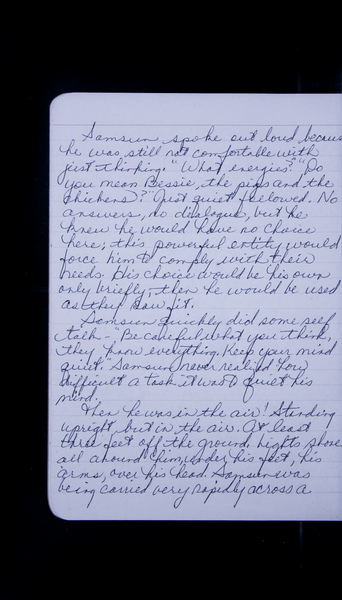 Samsun spoke out loud because
he was still not comfortable with
just thinking. "What energies?" "Do
you mean Bessie, the pigs and the
chickens?" Just quiet followed. No
answers, no dialogue, but he
knew he would have no choice
here; this powerful entity would
force him to comply with their
needs. His choice would be his own
only briefly, then he would be used
as they saw fit.
Samsun quickly did some self
talk - "Be careful what you think,
they know everything. Keep your mind
quiet." Samsun never realized how
difficult a task it was to quiet his
mind.
Then he was in the air! Standing
upright, but in the air. At least
three feet off the ground, lights shone
all around him, under his feet, his
arms, over his head. Samsun was
being carried very rapidly across a